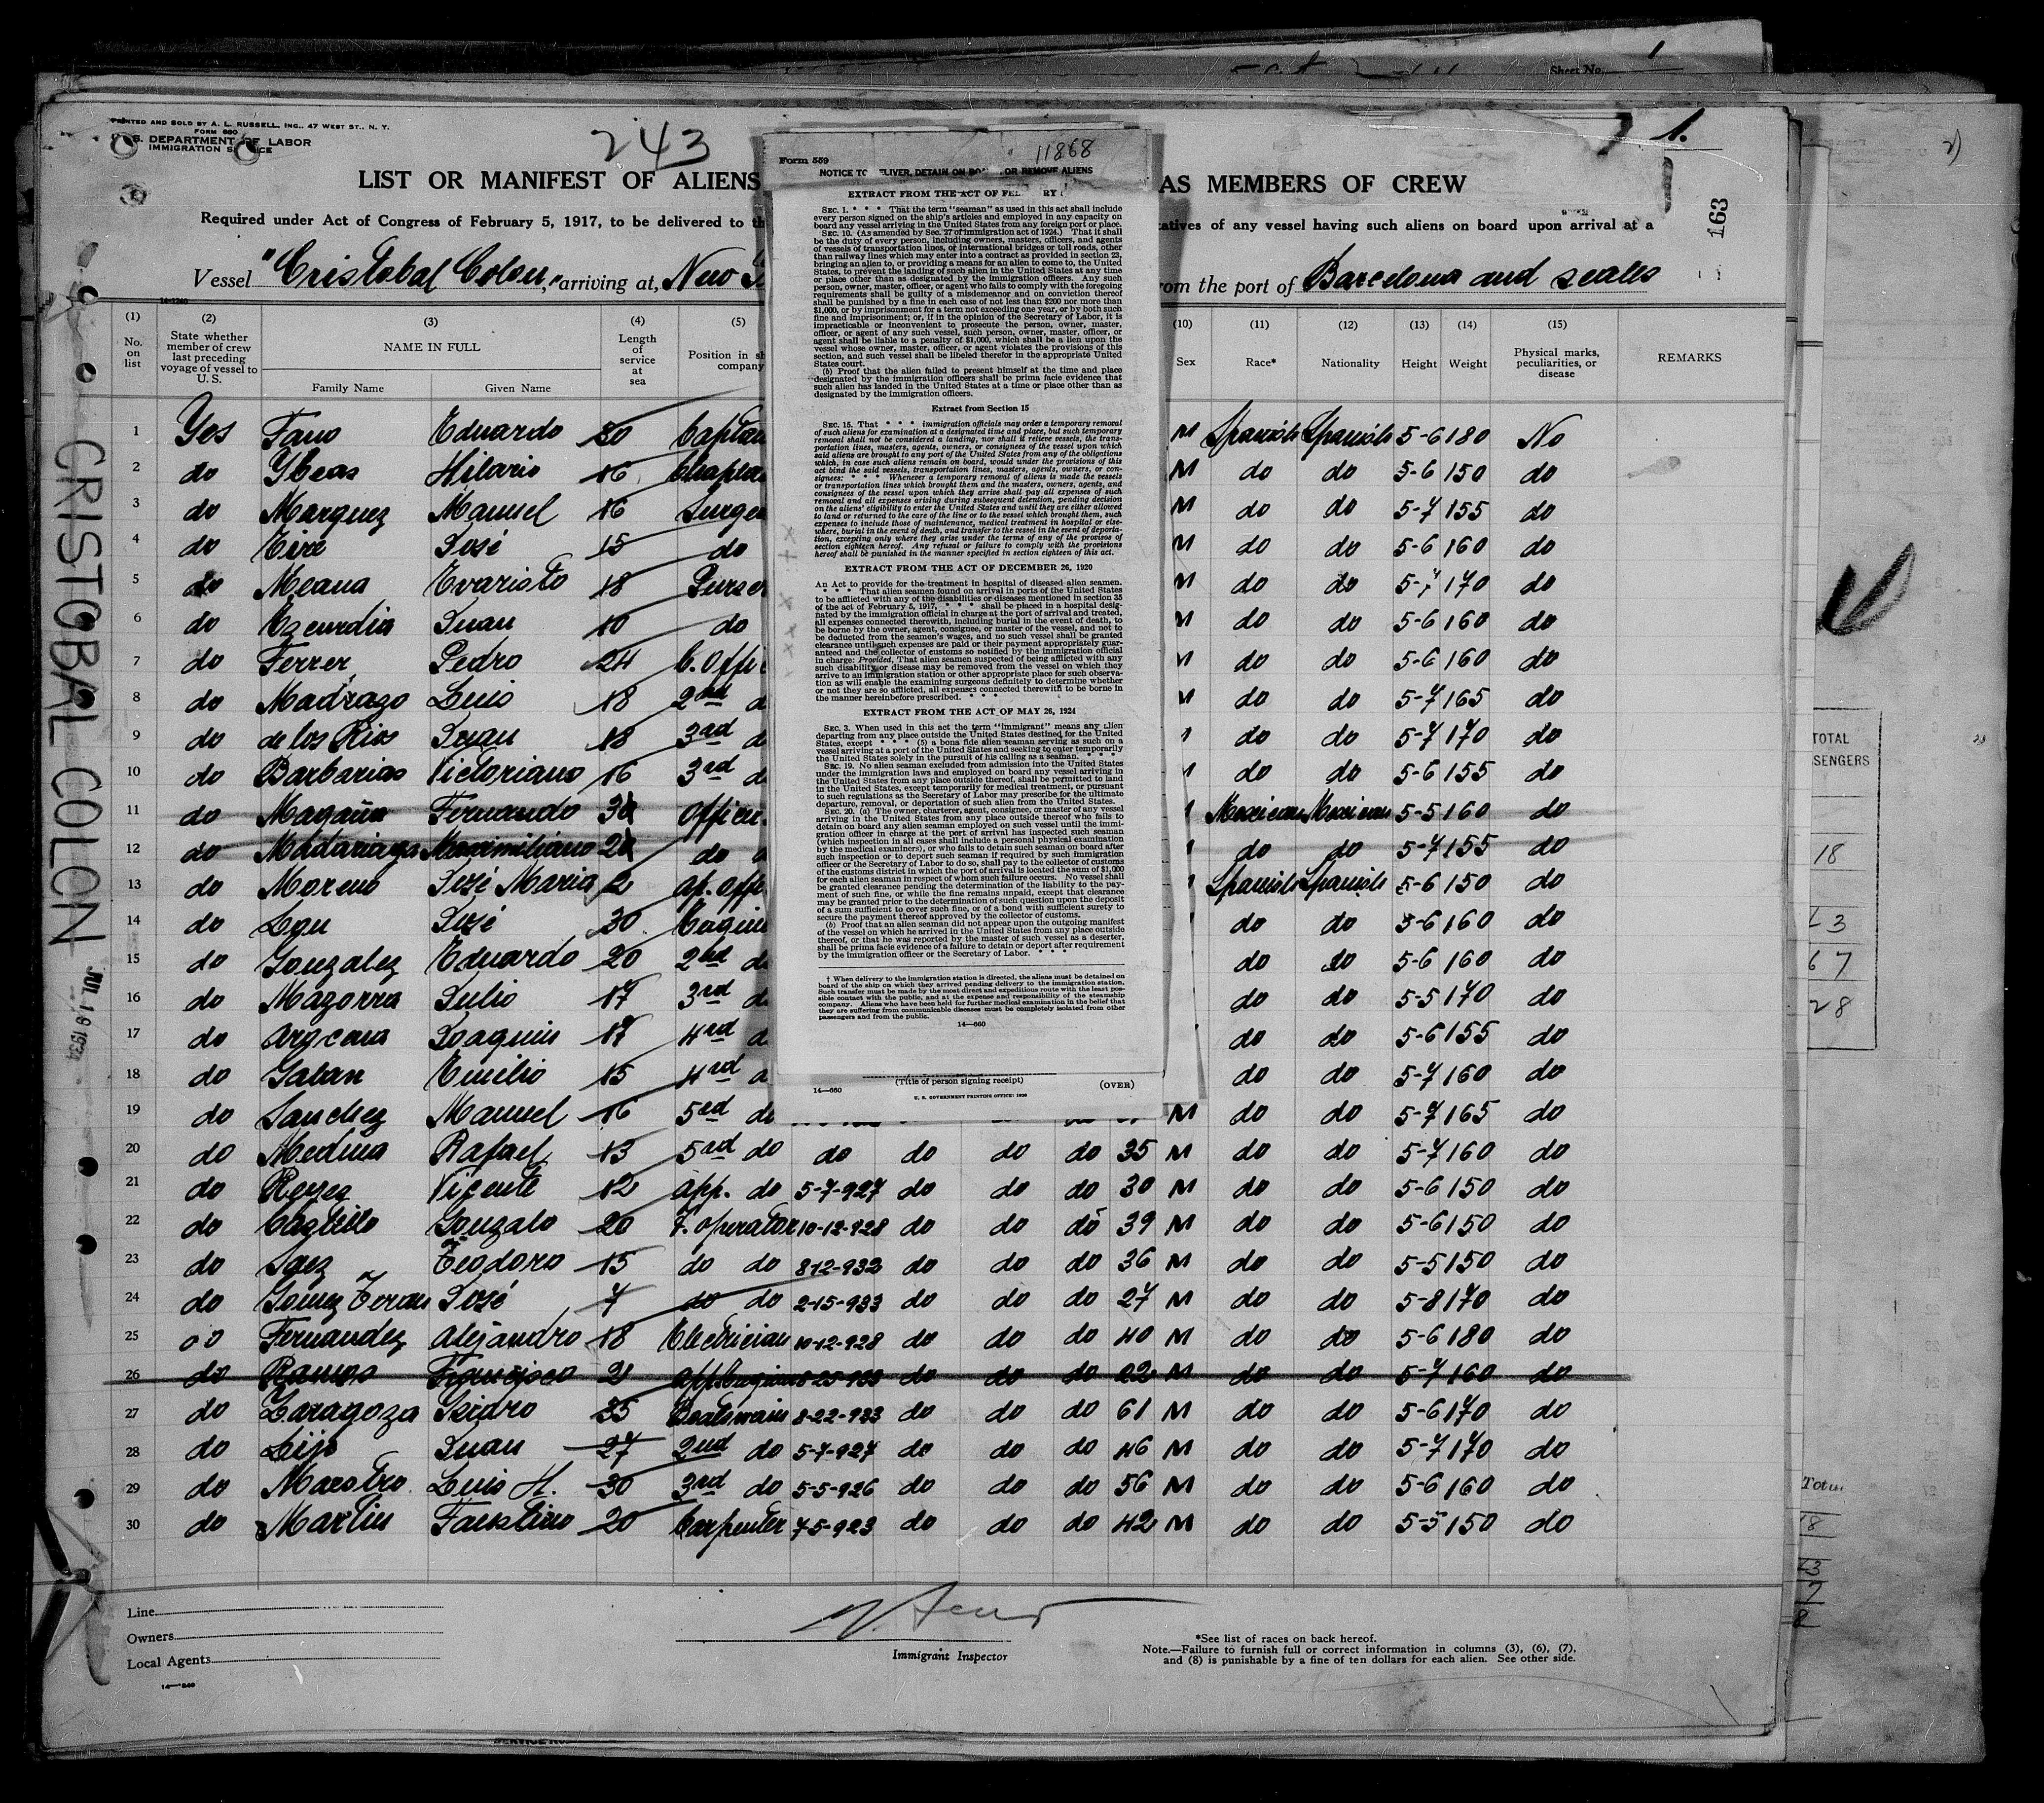 Sheet No. 1
PRINTED AND SOLD BY A. L. RUSSELL, INC., 47 WEST ST., N. Y.
FORM 680
U. S. DEPARTMENT OF LABOR
IMMIGRATION SERVICE
243
1.
163
LIST OR MANIFEST OF ALIENS
AS MEMBERS OF CREW
Required under Act of Congress of February 5, 1917, to be delivered to th
tatives of any vessel having such aliens on board upon arrival at a
Vessel "Cristobal Colon," arriving at, New
om the port of Barcelona and scales
Form 559
11868
NOTICE TO DELIVER, DETAIN ON BOARD, OR REMOVE ALIENS
EXTRACT FROM THE ACT OF FEBRUARY
SEC. 1. * * * That the term "seaman" as used in this act shall include
every person signed on the ship's articles and employed in any capacity on
board any vessel arriving in the United States from any foreign port or place.
SEC. 10. (As amended by Sec. 27 of immigration act of 1924.) That it shall
be the duty of every person, including owners, masters, officers, and agents
of vessels of transportation lines, or international bridges or toll roads, other
than railway lines which may enter into a contract as provided in section 23,
bringing an alien to, or providing a means for an alien to come to, the United
States, to prevent the landing of such alien in the United States at any time
or place other than as designated by the immigration officers. Any such
person, owner, master, officer, or agent who fails to comply with the foregoing
requirements shall be guilty of a misdemeanor and on conviction thereof
shall be punished by a fine in each case of not less than $200 nor more than
$1,000, or by imprisonment for a term not exceeding one year, or by both such
fine and imprisonment; or, if in the opinion of the Secretary of Labor, it is
impracticable or inconvenient to prosecute the person, owner, master,
officer, or agent of any such vessel, such person, owner, master, officer, or
agent shall be liable to a penalty of $1,000, which shall be a lien upon the
vessel whose owner, master, officer, or agent violates the provisions of this
section, and such vessel shall be libeled therefor in the appropriate United
States court.
(b) Proof that the alien failed to present himself at the time and place
designated by the immigration officers shall be prima facie evidence that
such alien has landed in the United States at a time or place other than as
designated by the immigration officers.
Extract from Section 15
SEC. 15. That * * * immigration officials may order a temporary removal
of such aliens for examination at a designated time and place, but such temporary
removal shall not be considered a landing, nor shall it relieve vessels, the trans-
portation lines, masters, agents, owners, or consignees of the vessel upon which
said aliens are brought to any port of the United States from any of the obligations
which, in case such aliens remain on board, would under the provisions of this
act bind the said vessels, transportation lines, masters, agents, owners, or con-
signees: * * * Whenever a temporary removal of aliens is made the vessels
or transportation lines which brought them and the masters, owners, agents, and
consignees of the vessel upon which they arrive shall pay all expenses of such
removal and all expenses arising during subsequent detention, pending decision
on the aliens' eligibility to enter the United States and until they are either allowed
to land or returned to the care of the line or to the vessel which brought them, such
expenses to include those of maintenance, medical treatment in hospital or else-
where, burial in the event of death, and transfer to the vessel in the event of deporta-
tion, excepting only where they arise under the terms of any of the provisos of
section eighteen hereof. Any refusal or failure to comply with the provisions
hereof shall be punished in the manner specified in section eighteen of this act.
EXTRACT FROM THE ACT OF DECEMBER 26, 1920
An Act to provide for the treatment in hospital of diseased alien seamen.
* * * That alien seamen found on arrival in ports of the United States
to be afflicted with any of the disabilities or diseases mentioned in section 35
of the act of February 5, 1917, * * * shall be placed in a hospital desig-
nated by the immigration official in charge at the port of arrival and treated,
all expenses connected therewith, including burial in the event of death, to
be borne by the owner, agent, consignee, or master of the vessel, and not to
be deducted from the seamen's wages, and no such vessel shall be granted
clearance until such expenses are paid or their payment appropriately guar-
anteed and the collector of customs so notified by the immigration official
in charge: Provided, That alien seamen suspected of being afflicted with any
such disability or disease may be removed from the vessel on which they
arrive to an immigration station or other appropriate place for such observa-
tion as will enable the examining surgeons definitely to determine whether
or not they are so afflicted, all expenses connected therewith to be borne in
the manner hereinbefore prescribed. * * *
EXTRACT FROM THE ACT OF MAY 26, 1924
SEC. 3. When used in this act the term "immigrant" means any alien
departing from any place outside the United States destined for the United
States, except * * * (5) a bona fide alien seaman serving as such on a
vessel arriving at a port of the United States and seeking to enter temporarily
the United States solely in the pursuit of his calling as a seaman. * * *
SEC. 19. No alien seaman excluded from admission into the United States
under the immigration laws and employed on board any vessel arriving in
the United States from any place outside thereof, shall be permitted to land
in the United States, except temporarily for medical treatment, or pursuant
to such regulations as the Secretary of Labor may prescribe for the ultimate
departure, removal, or deportation of such alien from the United States.
SEC. 20. (a) The owner, charterer, agent, consignee, or master of any vessel
arriving in the United States from any place outside thereof who fails to
detain on board any alien seaman employed on such vessel until the immi-
gration officer in charge at the port of arrival has inspected such seaman
(which inspection in all cases shall include a personal physical examination
by the medical examiners), or who fails to detain such seaman on board after
such inspection or to deport such seaman if required by such immigration
officer or the Secretary of Labor to do so, shall pay to the collector of customs
of the customs district in which the port of arrival is located the sum of $1,000
for each alien seaman in respect of whom such failure occurs. No vessel shall
be granted clearance pending the determination of the liability to the pay-
ment of such fine, or while the fine remains unpaid, except that clearance
may be granted prior to the determination of such question upon the deposit
of a sum sufficient to cover such fine, or of a bond with sufficient surety to
secure the payment thereof approved by the collector of customs.
(b) Proof that an alien seaman did not appear upon the outgoing manifest
of the vessel on which he arrived in the United States from any place outside
thereof, or that he was reported by the master of such vessel as a deserter,
shall be prima facie evidence of a failure to detain or deport after requirement
by the immigration officer or the Secretary of Labor. * * *
† When delivery to the immigration station is directed, the aliens must be detained on
board of the ship on which they arrived pending delivery to the immigration station.
Such transfer must be made by the most direct and expeditious route with the least pos-
sible contact with the public, and at the expense and responsibility of the steamship
company. Aliens who have been held for further medical examination in the belief that
they are suffering from communicable diseases must be completely isolated from other
passengers and from the public.
14—660
(Title of person signing receipt)
14—660
(OVER)
U. S. GOVERNMENT PRINTING OFFICE: 1930
(1) (2) (3) (4) (5) (10) (11) (12) (13) (14) (15)
No. on list
State whether member of crew last preceding voyage of vessel to U. S.
NAME IN FULL
Family Name Given Name
Length of service at sea
Position in sh company
Sex Race* Nationality Height Weight
Physical marks, peculiarities, or disease
REMARKS
1 Yes Fano Eduardo 30 Captain M Spanish Spanish 5-6 180 No
2 do Ybeas Hilario 16 Chaplain M do do 5-6 150 do
3 do Marquez Manuel 16 Surge M do do 5-7 155 do
4 do Eire José 15 do M do do 5-6 160 do
5 do Meana Evaristo 18 Purser M do do 5-7 170 do
6 do Ezcurdia Juan 10 do M do do 5-6 160 do
7 do Ferrer Pedro 24 C. Offi M do do 5-6 160 do
8 do Madrazo Luis 18 2nd d M do do 5-7 165 do
9 do de los Rios Juan 18 3rd d do do 5-7 170 do
10 do Barbarias Victoriano 16 3rd d do do 5-6 155 do
11 do Magaña Fernando Officer Mexican Mexican 5-5 160 do
12 do Madariaga Maximiliano do do do 5-7 155 do
13 do Moreno José Maria 2 ap. offi Spanish Spanish 5-6 150 do
14 do José 30 Engin do do 5-6 160 do
15 do Gonzalez Eduardo 20 2nd d do do 5-6 160 do
16 do Mazorra Julio 17 3rd d do do 5-5 170 do
17 do Joaquin 17 4rd d do do 5-6 155 do
18 do Galan Emilio 15 4rd d do do 5-7 160 do
19 do Sanchez Manuel 16 5rd do M do do 5-7 165 do
20 do Medina Rafael 13 5rd do do do do do 35 M do do 5-7 160 do
21 do Reyes Vicente 12 app. do 5-7-927 do do do 30 M do do 5-6 150 do
22 do Castillo Gonzalo 20 T. operator 10-12-928 do do do 39 M do do 5-6 150 do
23 do Saez Teodoro 15 do do 8-12-933 do do do 36 M do do 5-5 150 do
24 do Gomez Teran José 7 do do 2-15-933 do do do 27 M do do 5-8 170 do
25 do Fernandez Alejandro 18 Electrician 10-12-928 do do do 40 M do do 5-6 180 do
26 do Ramos Francisco 2 app. Engin 8-25-933 do do do 22 M do do 5-7 160 do
27 do Zaragoza Isidro 35 Boatswain 8-22-933 do do do 61 M do do 5-6 170 do
28 do Lijo Juan 27 2nd do 5-7-927 do do do 46 M do do 5-7 170 do
29 do Maestro Luis H. 30 3rd do 5-5-926 do do do 56 M do do 5-6 160 do
30 do Martin Faustino 20 Carpenter 7-5-923 do do do 42 M do do 5-5 150 do
CRISTOBAL COLON
JUL 19 1934
Line
Owners
Local Agents
Immigrant Inspector
*See list of races on back hereof.
Note.—Failure to furnish full or correct information in columns (3), (6), (7),
and (8) is punishable by a fine of ten dollars for each alien. See other side.
TOTAL
SSENGERS
18
67
28
Total
18